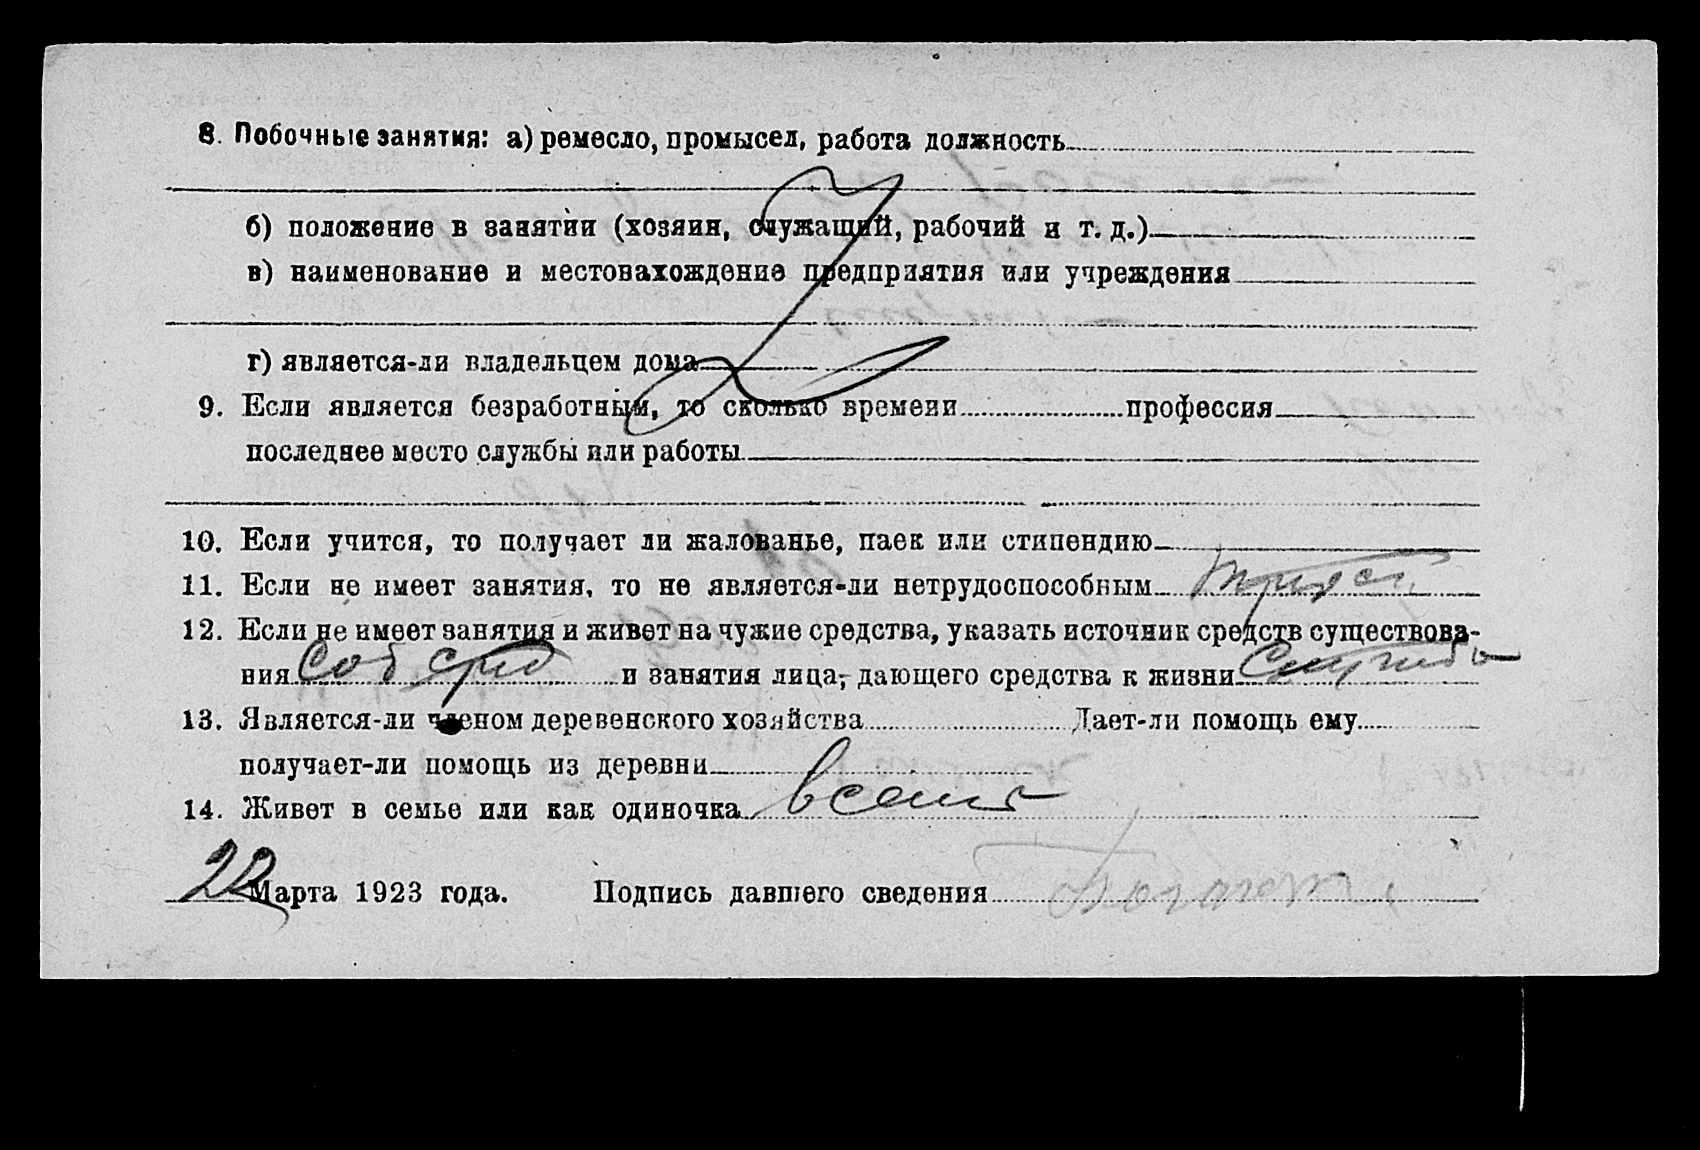 8. Побочные занятия: а) ремесло, промысел, работа должность
б) положение в занятии (хозяин, служащий, рабочий и т. д.)
в) наименование и местонахождение предприятия или учреждения
г) является-ли владельцем дома
9. Если является безработным, то сколько времени профессия
последнее место службы или работы
10. Если учится, то получает ли жалованье, паек или стипендию
11. Если не имеет занятия, то не является-ли нетрудоспособным
12. Если не имеет занятия и живет на чужие средства, указать источник средств существова-
ния Соб сред и занятия лица, дающего средства к жизни Служба
13. Является-ли членом деревенского хозяйства Дает-ли помощь ему
получает-ли помощь из деревни
14. Живет в семье или как одиночка в семье
22 Марта 1923 года. Подпись давшего сведения